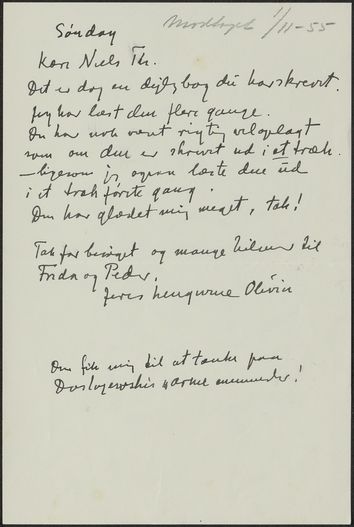 Søndag
Modtaget 1/11-55
Kære Niels Th.
Det er dog en dejlig bog du har skrevet.
Jeg har læst den flere gange.
Du har nok været rigtig veloplagt
som om den er skrevet ud i et træk.
– ligesom jeg ogsaa læste den ud
i et træk første gang.
Den har glædet mig meget, tak!
Tak for besøget og mange hilsner til
Frida og Peder.
Jeres hengivne Olivia
Den fik mig til at tænke paa
Dostojewskis "arme mennesker!